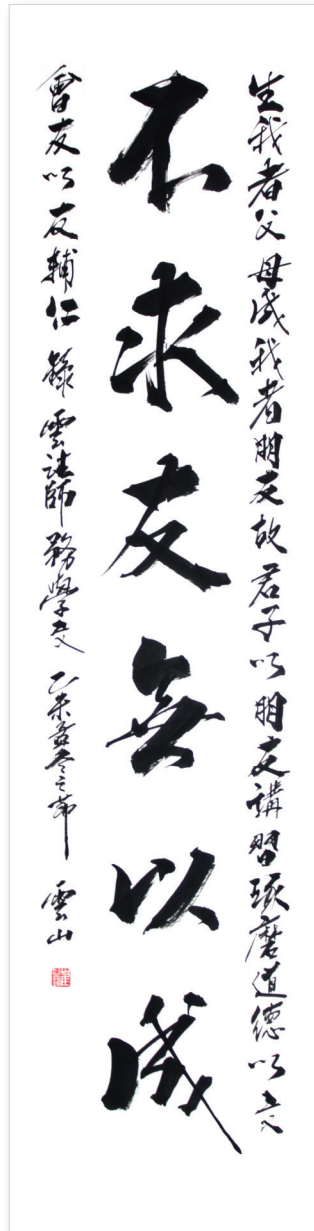 生我者父母成我者朋友故君子以朋友講習琢磨道德以文
不求友無以成
會友以友輔仁 錄 雲法師 務學文 乙未孟冬之節 雲山